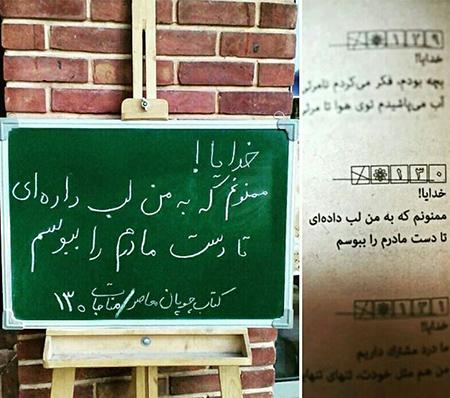 خدایا!
ممنونم که به من لب داده‌ای
تا دست مادرم را ببوسم
کتاب چوپان معاصر/مناجات ۱۳۰
۱۲۹
خدایا!
بچه بودم، فکر می‌کردم
آب می‌پاشیدم توی هوا تا
۱۳۰
خدایا!
ممنونم که به من لب داده‌ای
تا دست مادرم را ببوسم
۱۳۱
خدایا!
ما درد مشترک داریم
من هم مثل خودت، تنهای تنها